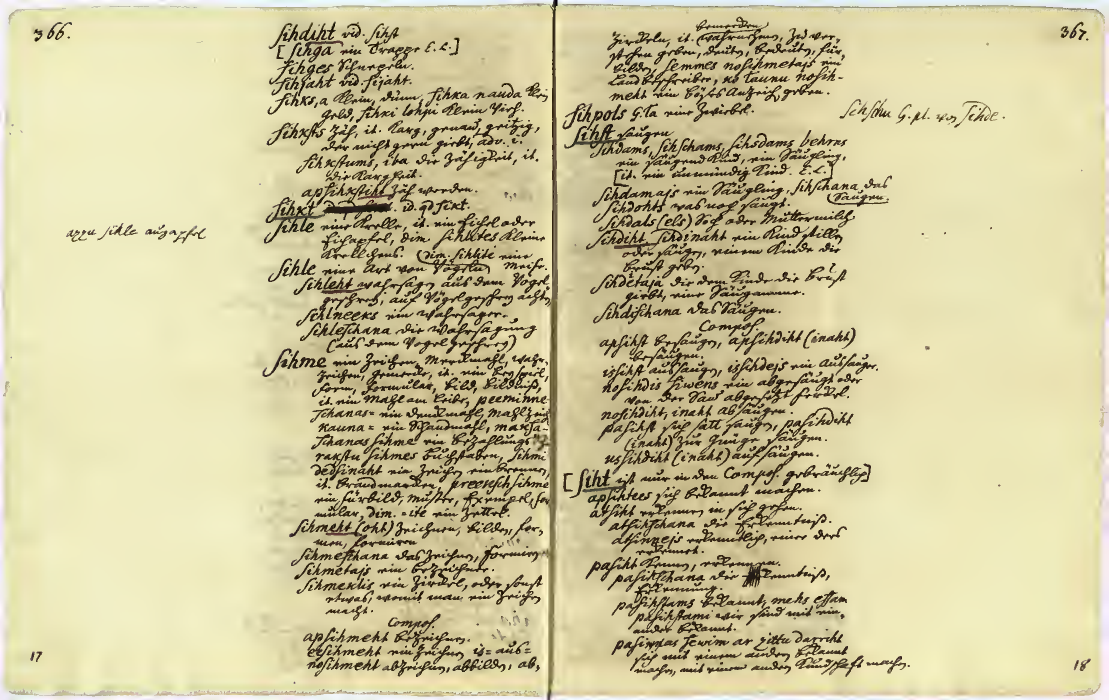 366.
sihdiht vid. sihst
[sihga ein Trappe E.L.]
sihges Schnepeln.
sihjaht vid. sijaht.
sihks, a klein, dünn, sihka nauda klein
geld, sihki lohpi klein Vieh.
sihksts zäh, it. karg, genau, geitzig,
der nicht gern giebt, adv. i.
sihkstums, iba die Zähigkeit, it.
die Kargheit.
apsihksteht zäh werden.
sihkt id. qd sikt.
sihle eine Krelle, it. ein Eichel oder
Eichapfel, dim. sihlites kleine
Krellchens. (dim. sihlite eine
sihle eine Art von Vögeln) Meise.
azzu sihle augapfel
sihleht wahrsagen aus dem Vogel
geschrey, auf Vögelgeschrey achten
sihlneeks ein Wahrsager.
sihleschana die Wahrsagung
(aus dem Vogelgeschrey)
sihme ein Zeichen, Merckmahl, wahr-
zeichen, gemerck, it. ein beyspiel,
form, formular, bild, bildniß,
it. ein Mahl am Leibe, peeminne-
schanas = ein denckmahl, mahlzeich
kauna = ein Schandmahl, mahza-
schanas sihme ein Erzählungs
rakstu sihmes buchstaben, sihmi
dedsinaht ein Zeichen einbrennen,
it. brandmarcken, preekschsihme
ein fürbild, muster, Exempel, for
mular, dim. = ite ein Zettel.
sihmeht (oht) Zeichnen, bilden, for-
men, formiren
sihmeschana das Zeichen, formiren
sihmetajs ein bezeichner.
sihmeklis ein Zirckel, oder sonst
etwas, womit man ein Zeichen
macht.
Compos.
apsihmeht bezeichnen.
eesihmeht einzeichnen is = aus =
nosihmeht abzeichnen, abbilden, ab,
17
367.
bemercken
zirckeln, it. wahrnehmen, zu ver-
stehen geben, deuten, bedeuten, für
bilden, semmes nosihmetajs ein
Landbeschreiber, ko launu nosih-
meht ein böses Anzeich geben.
sihpols G. la eine Zwiebel.
sihschu G. pl. von sihde.
sihst saugen
sihdams, sihschams, sihsdams behrns
ein säugend Kind, ein Säugling,
[it. ein unmündig Kind. E.L.]
sihdamajs ein Säugling, sihschana das
saugen.
sihdohts was noch saugt.
sihdals (els) Loch oder Müttermilch
sihdiht, sihdinaht ein Kind stillen
oder säugen, einem Kinde die
brust geben.
sihdetaja die dem Kinde die brust
giebt, eine Säugamme.
sihdischana das Säugen.
Compos.
apsihst besaugen, apsihdiht (inaht)
besäugen.
issihst aussaugen, issihdejs ein Aussauger.
nosihdis siwens ein abgesäugt oder
von der Sau abgesetzt ferckel.
nosihdiht, inaht absäugen.
pasihst sich satt saugen, pasihdiht
(inaht) zur Gnüge säugen.
ussihdiht (inaht) aufsäugen.
[siht ist nur in den Compos. gebräuchlich]
apsihtees sich bekannt machen.
atsiht erkennen, in sich gehen.
atsihschana die Erkenntniß.
atsinnejs erkenntlich, einer der
erkennet.
pasiht kennen, erkennen.
pasihschana die kenntniß,
Erkennung.
pasihstams bekannt, mehs essam
pasihstami wir sind mit ein-
ander bekannt.
pasinnas sewim ar zittu darriht
sich mit einem andern bekannt
machen, mit einem andern Kundschaft machen.
18